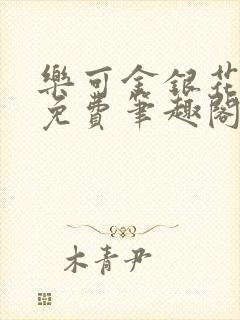 樂可金銀花
免費筆趣閣
木青尹